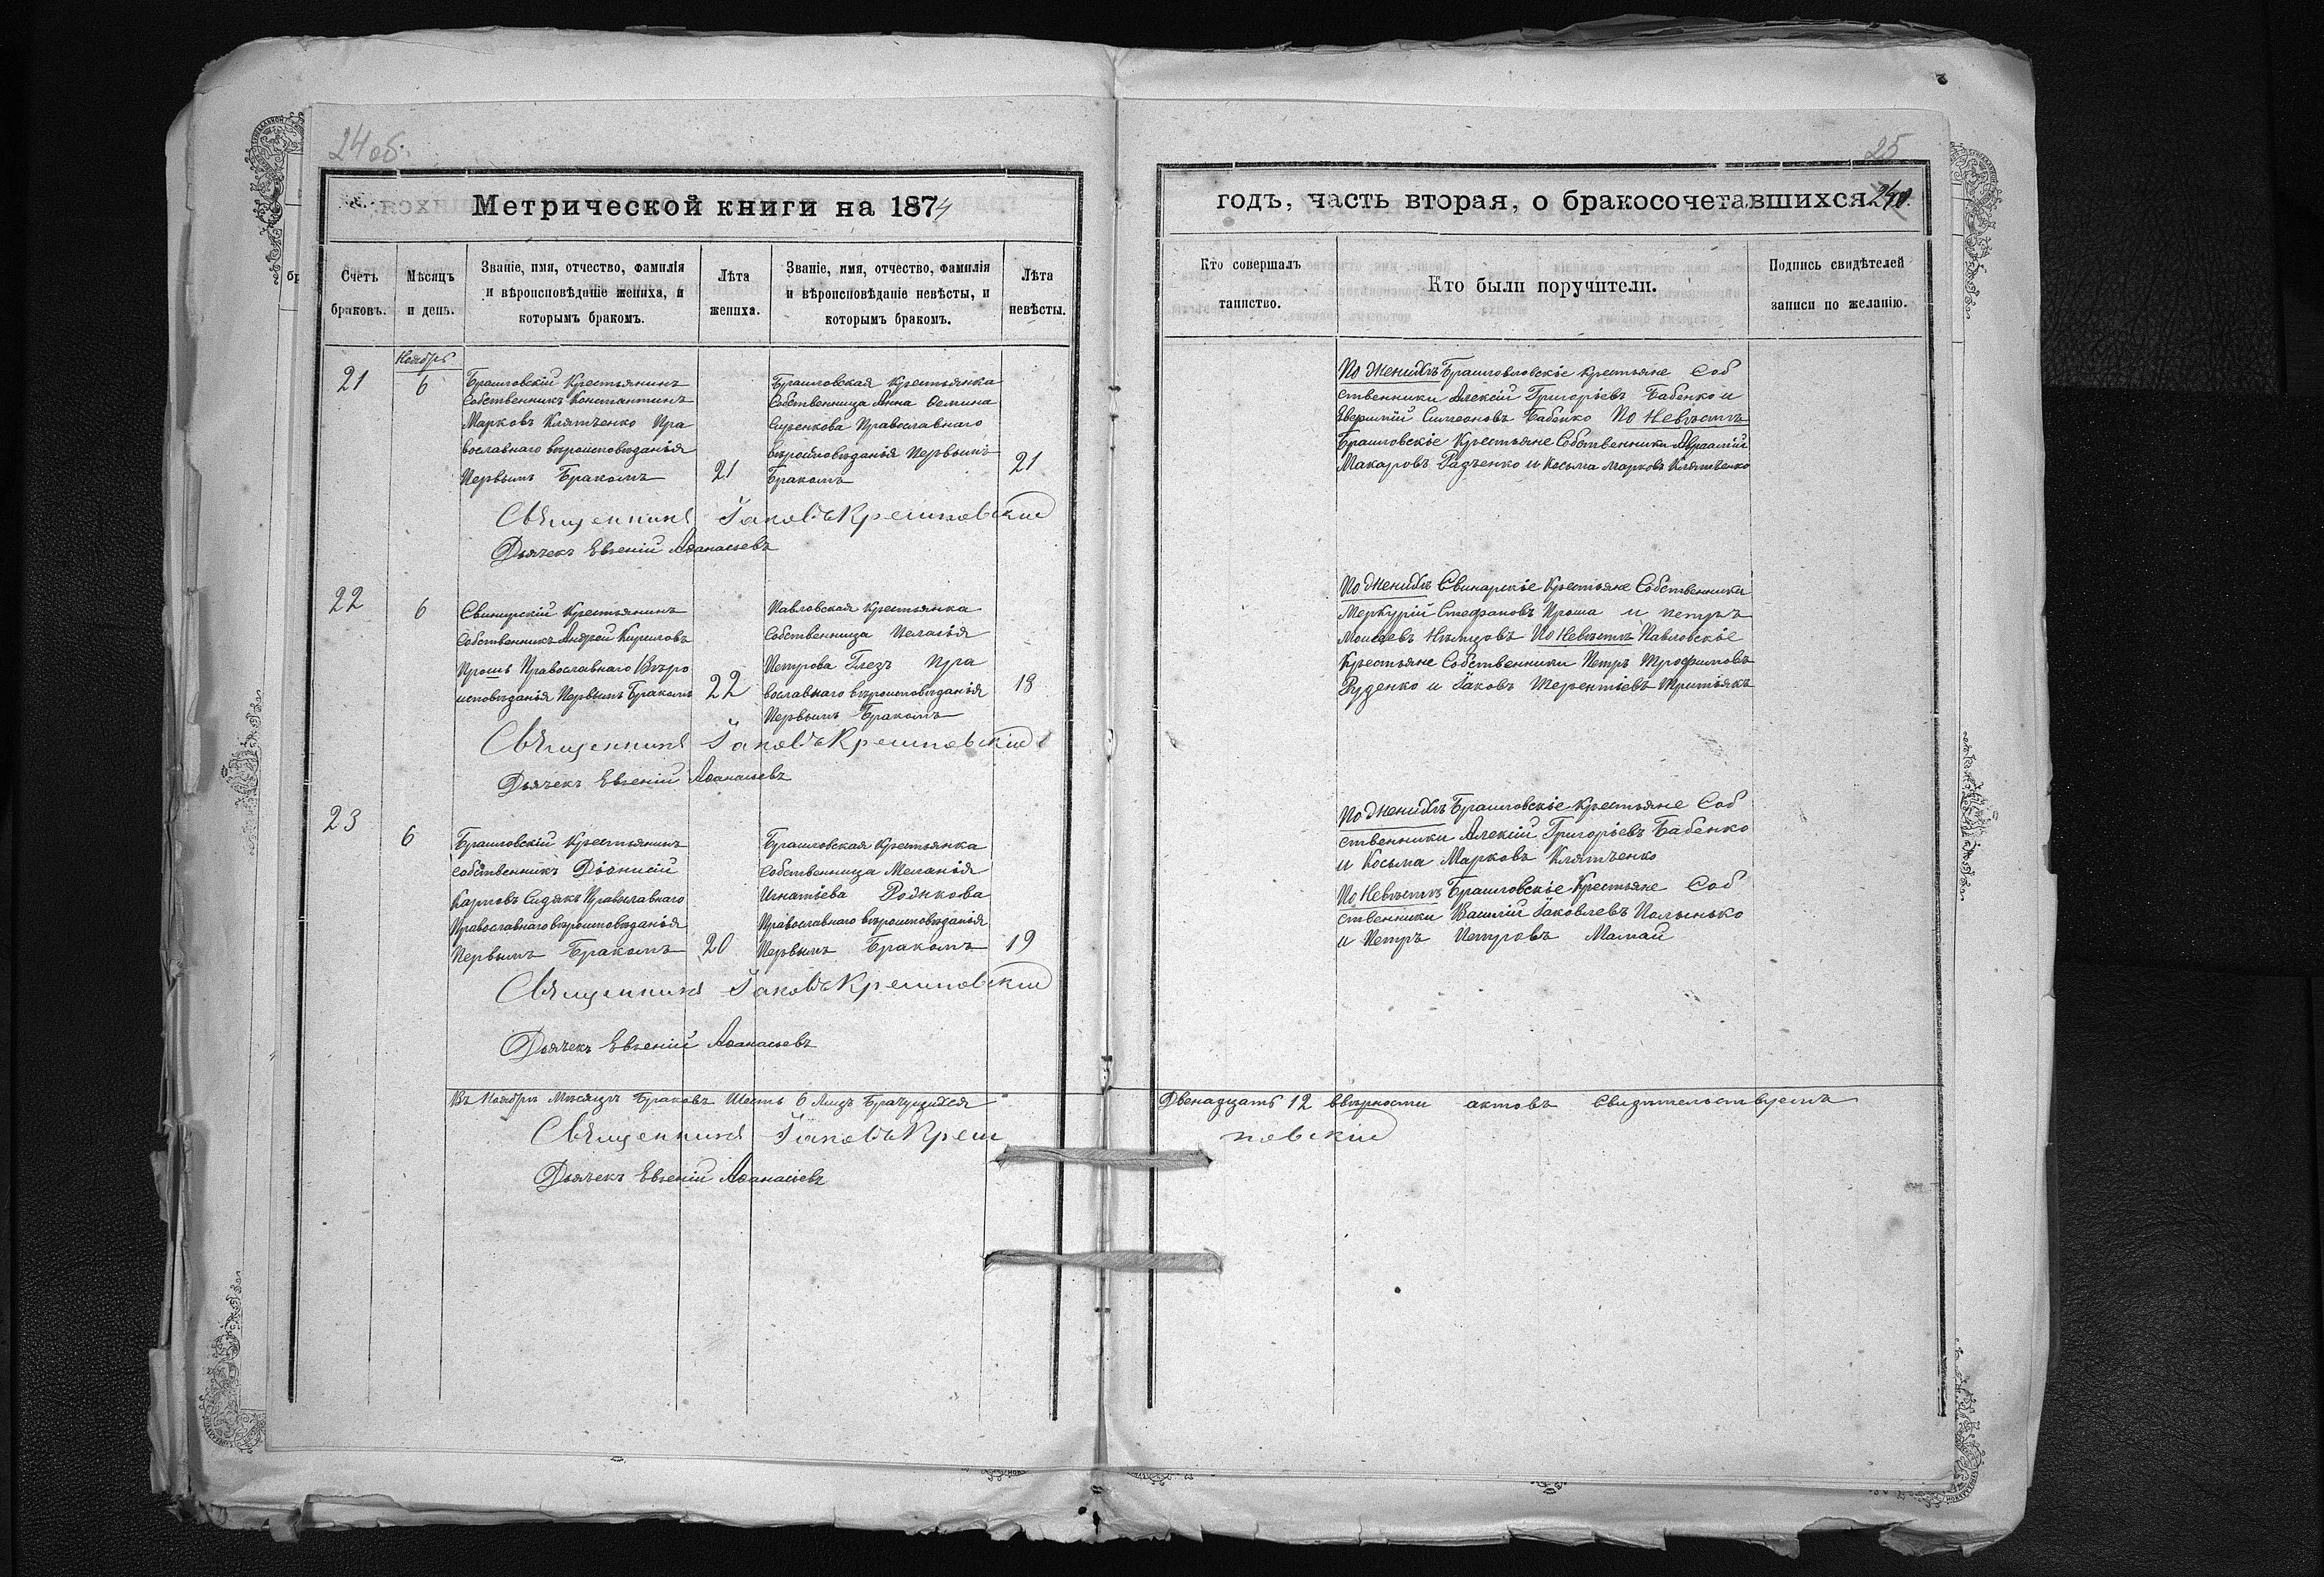 24 об.
Метрической книги на 1874
Счетъ браковъ.
Мѣсяцъ и день.
Званіе, имя, отчество, фамилія и вѣроисповѣданіе жениха, и которымъ бракомъ.
Лѣта жениха.
Званіе, имя, отчество, фамилія и вѣроисповѣданіе невѣсты, и которымъ бракомъ.
Лѣта невѣсты.
Ноябрь
21
6
Браиловскій Крестьянинъ
Собственникъ Константинъ
Марковъ Клятченко Пра
вославнаго вѣроисповѣданія
Первымъ Бракомъ
21
Браиловская Крестьянка
Собственница Анна
Православнаго
вѣроисповѣданія Первымъ
Бракомъ
21
Священникъ Іаковъ Крешповскій
Дьячекъ Евгеній Аѳанасьевъ
22
6
Свинарскій Крестьянинъ
Собственникъ Андрей Кириловъ
Прошъ Православнаго Вѣро
исповѣданія Первымъ Бракомъ
22
Павловская Крестьянка
Собственница Пелагія
Петрова Глезъ Пра
вославнаго вѣроисповѣданія
Первымъ Бракомъ
18
Священникъ Іаковъ Крешповскій
Дьячекъ Евгеній Аѳанасьевъ
23
6
Браиловскій Крестьянинъ
Собственникъ Діонисій
Карповъ Сидякъ Православнаго
Православнаго вѣроисповѣданія
Первымъ Бракомъ
20
Браиловская Крестьянка
Собственница Меланія
Игнатіева Родькова
Православнаго вѣроисповѣданія
Первымъ Бракомъ
19
Священникъ Іаковъ Крешповскій
Дьячекъ Евгеній Аѳанасьевъ
Въ Ноябрѣ Мѣсяцѣ Браковъ Шесть 6 Лицъ Брачущихся
Священникъ Іаковъ Креш
Дьячекъ Евгеній Аѳанасьевъ
25
годъ, часть вторая, о бракосочетавшихся
Кто совершалъ таинство.
Кто были поручители.
Подпись свидѣтелей записи по желанію.
По Женихѣ Браиловскіе Крестьяне Соб
ственники Алексій Григорьевъ Бабенко и
Симеоновъ Бабенко По Невѣстѣ
Браиловскіе Крестьяне Собственники Авраамій
Макаровъ Радченко и Косьма Марковъ Клятченко
По Женихѣ Свинарскіе Крестьяне Собственники
Меркурій Стефановъ Проша и Петръ
Моисеевъ Нѣмцовъ По Невѣстѣ Павловскіе
Крестьяне Собственники Петръ Трофимовъ
Руденко и Іаковъ Терентіевъ Тритьякъ
По Женихѣ Браиловскіе Крестьяне Соб
ственники Алексій Григорьевъ Бабенко
и Косьма Марковъ Клятченко
По Невѣстѣ Браиловскіе Крестьяне Соб
ственники Василій Іаковлевъ Полынько
и Петръ Петровъ Мамай
Двенадцать 12 ввѣрности актовъ Свидѣтельствуемъ
повскій